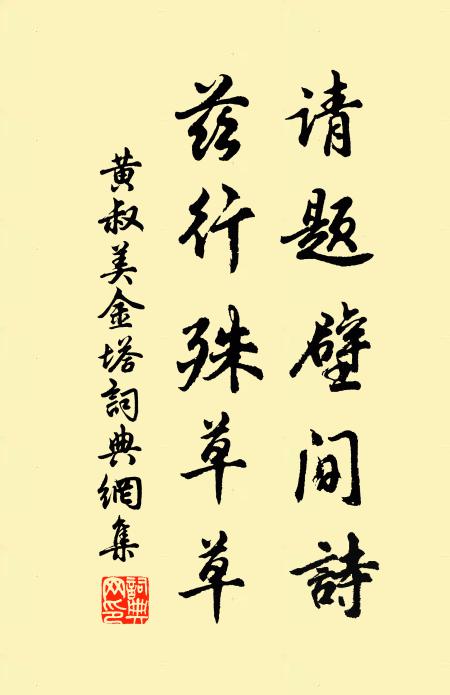 请题壁间詩
茲行殊草草
黄叔美金塔詞典網集
詞典网印